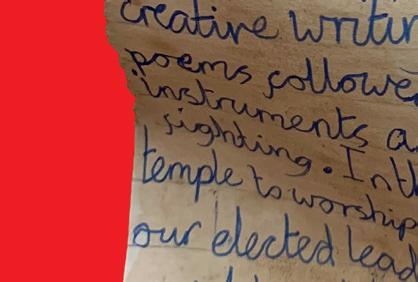 creative writin
poems followe
instruments a
sighting. In th
temple to worship
our elected lead